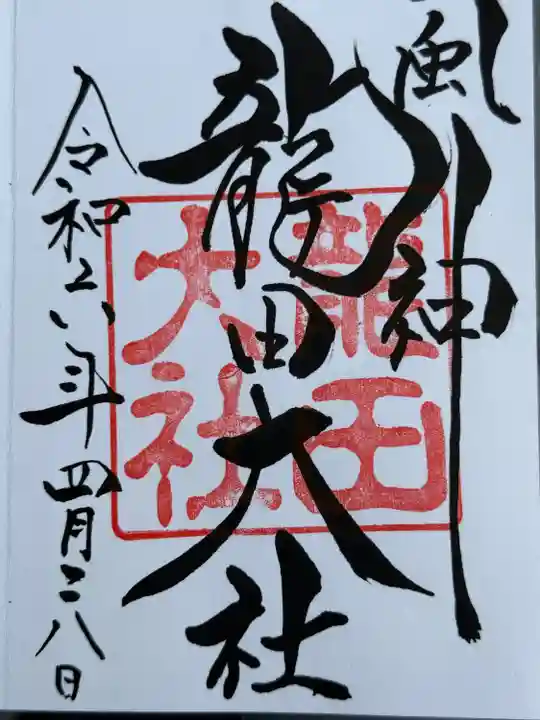 風神
龍田大社
龍田
大社
令和六年四月二八日